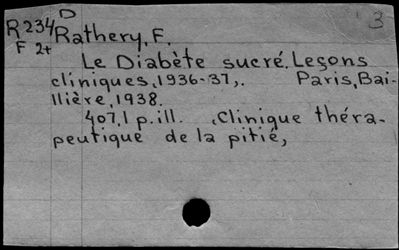 D
3
R234 Rathery, F.
F 2t
Le Diabète sucré. Leçons
cliniques, 1936-37,. Paris, Bai-
llière, 1938.
407,1 p. ill. , Clinique théra-
peutique de la pitié,